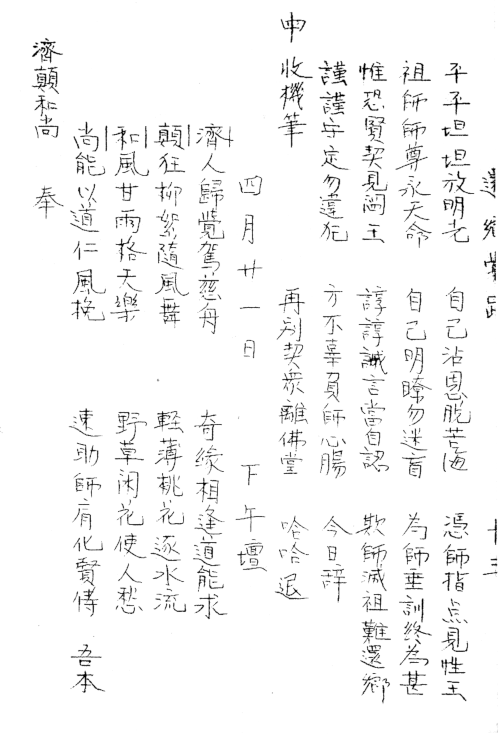 十三
平平坦坦放明光 自己沾恩脫苦海 憑師指点見性王
祖師師尊永天命 自己明瞭勿迷盲 為師垂訓終為甚
惟恐賢契見閻王 諄諄誠言當自認 欺師滅祖難還鄉
謹謹守定勿違犯 方不辜負師心腸 今日辞
申收機筆 再别契衆離佛堂 哈哈退
四月廿一日 下午壇
濟人歸覺駕慈舟 奇缘相逢道能求
顛狂柳絮隨風舞 軽薄桃花逐水流
和風甘雨格天樂 野草闲花使人愁
尚能以道仁風挽 速助師育化賢儔 吾本
濟顛和尚 奉